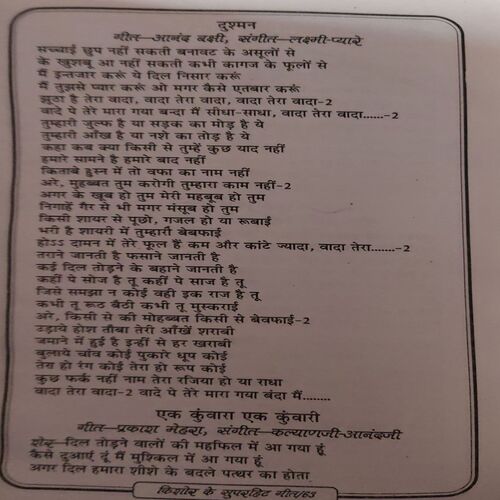 दुश्मन
गीत—आनंद बक्षी, संगीत—लक्ष्मी-प्यारे
सच्चाई छुप नहीं सकती बनावट के असूलों से
के खुशबू आ नहीं सकती कभी कागज के फूलों से
मैं इन्तजार करूं ये दिल निसार करूं
मैं तुझसे प्यार करूं ओ मगर कैसे एतबार करूं
झूठा है तेरा वादा, वादा तेरा वादा, वादा तेरा वादा-2
वादे पे तेरे मारा गया बन्दा मैं सीधा-साधा, वादा तेरा वादा......-2
तुम्हारी जुल्फ है या सड़क का मोड़ है ये
तुम्हारी आँख है या नशे का तोड़ है ये
कहा कब क्या किसी से तुम्हें कुछ याद नहीं
हमारे सामने है हमारे बाद नहीं
किताबे हुस्न में तो वफा का नाम नहीं
अरे, मुहब्बत तुम करोगी तुम्हारा काम नहीं-2
अगर के खूब हो तुम मेरी महबूब हो तुम
निगाहें गैर से भी मगर मंसूब हो तुम
किसी शायर से पूछो, गजल हो या रूबाई
भरी है शायरी में तुम्हारी बेवफाई
होऽऽ दामन में तेरे फूल हैं कम और कांटे ज्यादा, वादा तेरा.......-2
तराने जानती है फसाने जानती है
कई दिल तोड़ने के बहाने जानती है
कहीं पे सोज है तू कहीं पे साज है तू
जिसे समझा न कोई वही इक राज है तू
कभी तू रूठ बैठी कभी तू मुस्कराई
अरे, किसी से की मोहब्बत किसी से बेवफाई-2
उड़ाये होश तौबा तेरी आँखें शराबी
जमाने में हुई है इन्हीं से हर खराबी
बुलाये चांव कोई पुकारे धूप कोई
तेरा हो रंग कोई तेरा हो रूप कोई
कुछ फर्क नहीं नाम तेरा रजिया हो या राधा
वादा तेरा वादा-2 वादे पे तेरे मारा गया बंदा मैं........
एक कुंवारा एक कुंवारी
गीत—प्रकाश मेहरा, संगीत—कल्याणजी-आनंदजी
शेर- दिल तोड़ने वालों की महफिल में आ गया हूं
कैसे दुआएं दूं मैं मुश्किल में आ गया हूं
अगर दिल हमारा शीशे के बदले पत्थर का होता
किशोर के सुपरहिट गीत/83